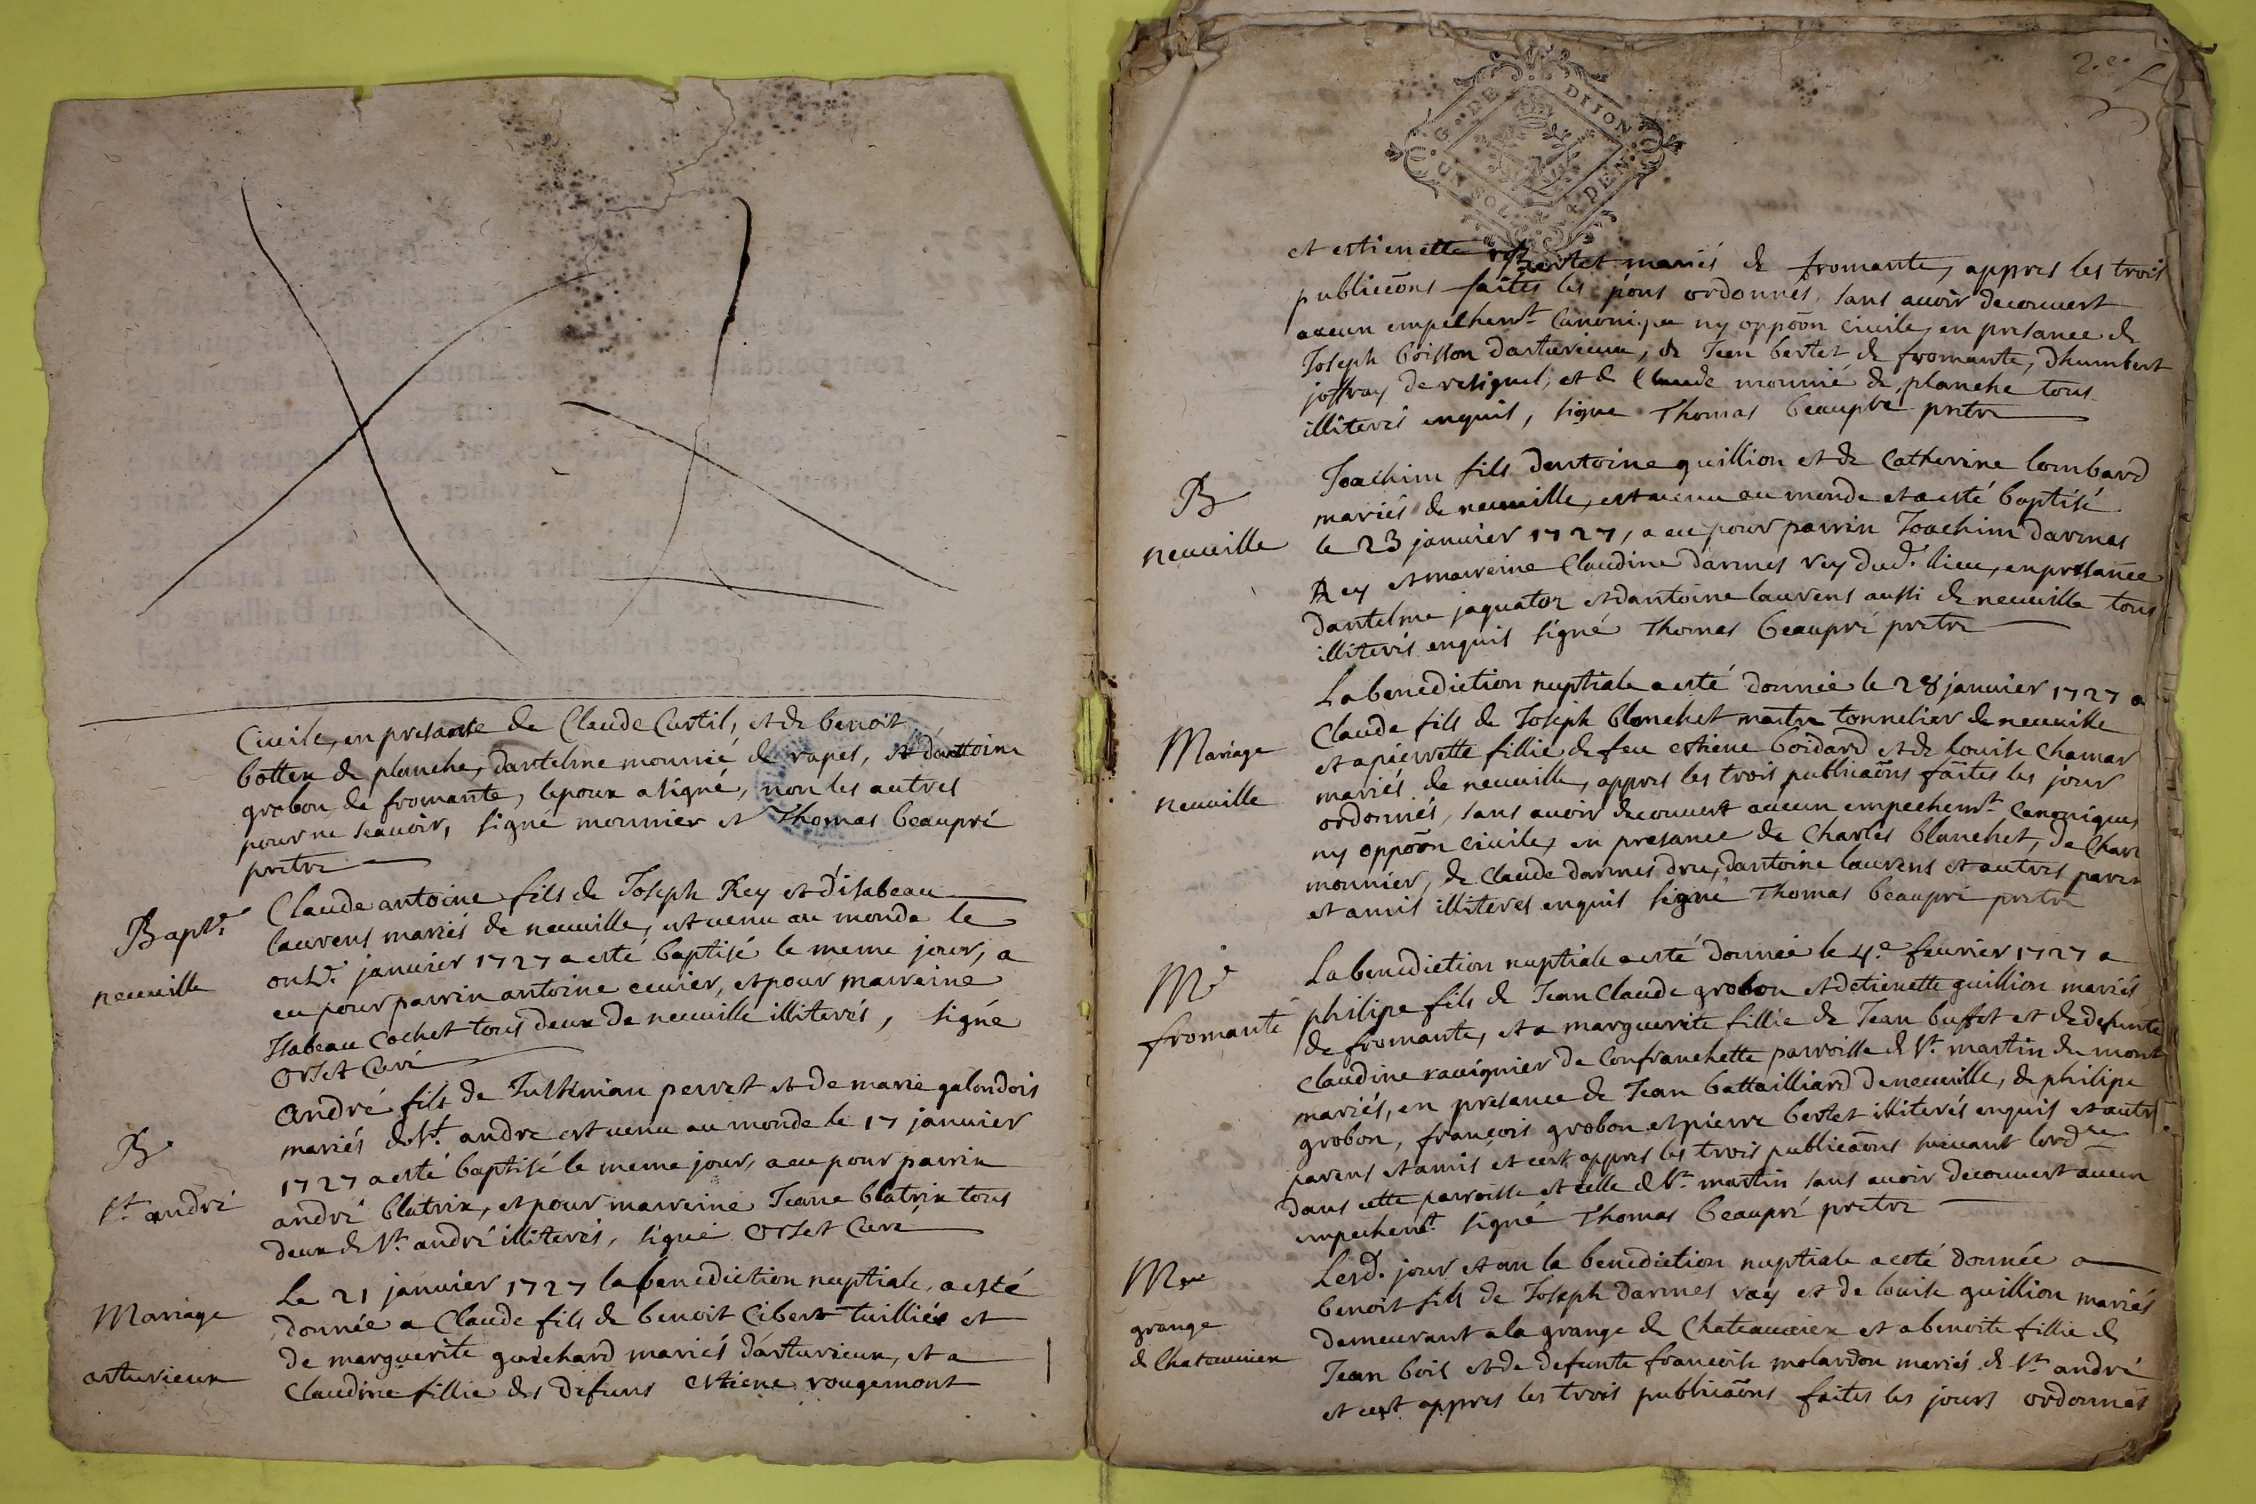 Civile, en presance de Claude Curtil, et de benoit
bottex de planche, dantelme monnié de rapes, et dantoine
grobon de fromante, lepoux a signé, non les autres
pour ne scavoir, signé monnier et Thomas beaupré
pretre
Bapt.
neuville
Claude antoine fils de Joseph Rey et d'isabeau
laurens mariés de neuville, est venu au monde le
onz.e janvier 1727 a esté baptisé le meme jour, a
eu pour parrin antoine cuvier, et pour marreine
Isabeau Cochet tous deux de neuville illiterés, signé
Orset Curé
B.
st. andré
André fils de Justinian perret et de marie galondois
mariés de st. andré est venu au monde le 17 janvier
1727 a esté baptisé le meme jour, a eu pour parrin
andré blatrix, et pour marreine Jeane blatrix tous
deux de st. andré illiterés, signé Orset Curé
Mariage
arturieux
Le 21 janvier 1727 la benediction nuptiale a esté
donnée a Claude fils de benoit Cibert tuilliér et
de marguerite guichard mariés d'arturieux, et a
Claudine fillie des defuns estiene rougemont
2.e
G. DE DIJON
UN SOL 4 DEN.
et estienette bertet mariés de fromante, appres les trois
publicaõns faites les jours ordonnés, sans avoir decouvert
aucun empechemt. Canonique ny oppoõn civile, en presance de
Joseph boisson darturieux, de Jean bertet de fromante, dhumbert
joffray de resignel, et de Claude monnié de planche tous
illiterés enquis, signe Thomas beaupré pretre
B
neuville
Joachim fils dantoine guillion et de Catherine lombard
mariés de neuville, est venu au monde et a esté baptisé
le 23 janvier 1727, a eu pour parrin Joachim darmes
Rey et marreine Claudine darmes rey dud. lieu, en presance
dantelme jaquator et dantoine laurens aussi de neuville tous
illiterés enquis signé Thomas beaupré pretre
Mariage
neuville
La benediction nuptiale a esté donnée le 28 janvier 1727 a
Claude fils de Joseph blanchet maitre tonnelier de neuville
et a pierrette fillie de feu estiene boidard et de louise chamar
mariés de neuville, appres les trois publicaõns faites les jour
ordonnés, sans avoir decouvert aucun empechemt. Canonique,
ny oppoõn civile, en presance de Charles blanchet, de Charl
monnier, de Claude darmes dru, dantoine laurens et autres paren
et amis illiterés enquis signé Thomas beaupré pretre
M.e
fromante
La benediction nuptiale a esté donnée le 4.e fevrier 1727 a
philipe fils de Jean Claude grobon et detienette guillion mariés
de fromante, et a marguerite fillie de Jean buffet et de defunte
Claudine ravignier de Confranchette parroisse de st. martin du mont
mariés, en presance de Jean battailliard de neuville, de philipe
grobon, françois grobon et pierre bertet illiterés enquis et autres
parens et amis et cest appres les trois publicaõns suivant lord.re
dans cette parroisse et celle de st. martin sans avoir decouvert aucun
empechemt. signé Thomas beaupré pretre
M.ge
grange
de Chateauvieux
Lesd. jour et an la benediction nuptiale a esté donnée a
benoit fils de Joseph darmes rey et de louise guillion mariés
demeurant a la grange de Chateauvieux et a benoite fillie de
Jean bois et de defunte françoise molardon mariés de st. andré
et cest appres les trois publicaõns faites les jours ordonnés